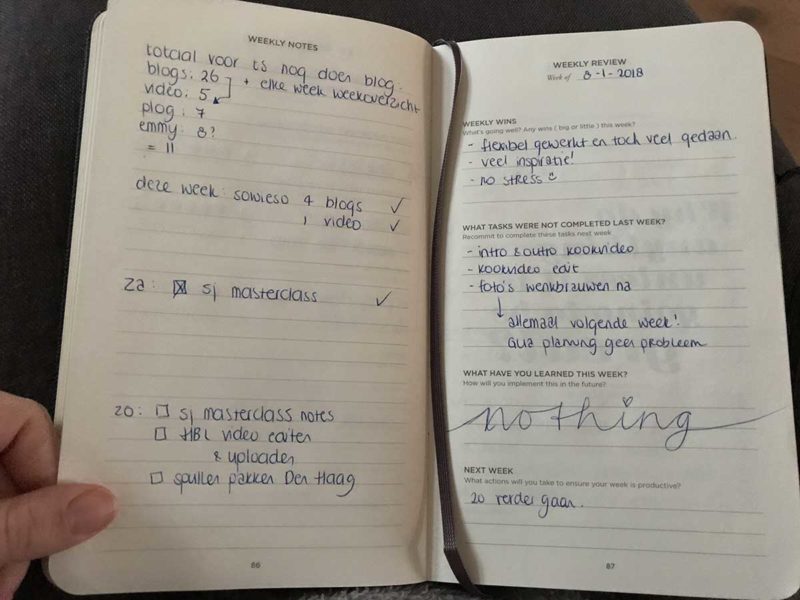 WEEKLY NOTES
totaal voor ts nog doen blog:
blogs: 26 + elke week weekoverzicht
video: 5
plog: 7
emmy: 8?
= 11
deze week: sowieso 4 blogs ✓
1 video ✓
za: ☒ sj masterclass ✓
zo: ☐ sj masterclass notes
☐ HBL video editen
& uploaden
☐ spullen pakken Den Haag
86
WEEKLY REVIEW
Week of 8-1-2018
WEEKLY WINS
What's going well? Any wins ( big or little ) this week?
- flexibel gewerkt en toch veel gedaan.
- veel inspiratie!
- no stress
WHAT TASKS WERE NOT COMPLETED LAST WEEK?
Recommit to complete these tasks next week
- intro & outro kookvideo
- kookvideo edit
- foto's wenkbrauwen na
↓
allemaal volgende week!
Qua planning geen probleem
WHAT HAVE YOU LEARNED THIS WEEK?
How will you implement this in the future?
nothing
NEXT WEEK
What actions will you take to ensure your week is productive?
zo verder gaan.
87